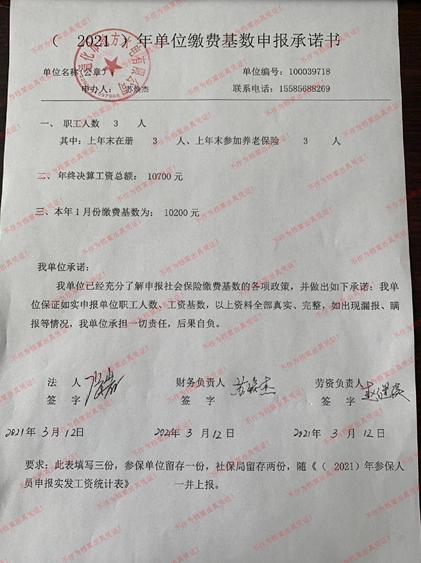 （ 2021 ）年单位缴费基数申报承诺书
单位名称(公章)
单位编号：100039718
申办人：
联系电话：15585688269
一、 职工人数 3 人
其中：上年末在册 3 人、上年末参加养老保险 3 人
二、 年终决算工资总额： 10700 元
三、本年 1 月份缴费基数为： 10200 元
我单位承诺：
我单位已经充分了解申报社会保险缴费基数的各项政策，并做出如下承诺：我单
位保证如实申报单位职工人数、工资基数，以上资料全部真实、完整，如出现漏报、瞒
报等情况，我单位承担一切责任，后果自负。
法 人
签 字
财务负责人
签 字
劳资负责人
签 字
2021年 3 月 12日
2021年 3 月 12 日
2021年 3 月 12 日
要求：此表填写三份，参保单位留存一份，社保局留存两份，随《（ 2021）年参保人
员申报实发工资统计表》 一并上报。
不作为档案出具凭证！